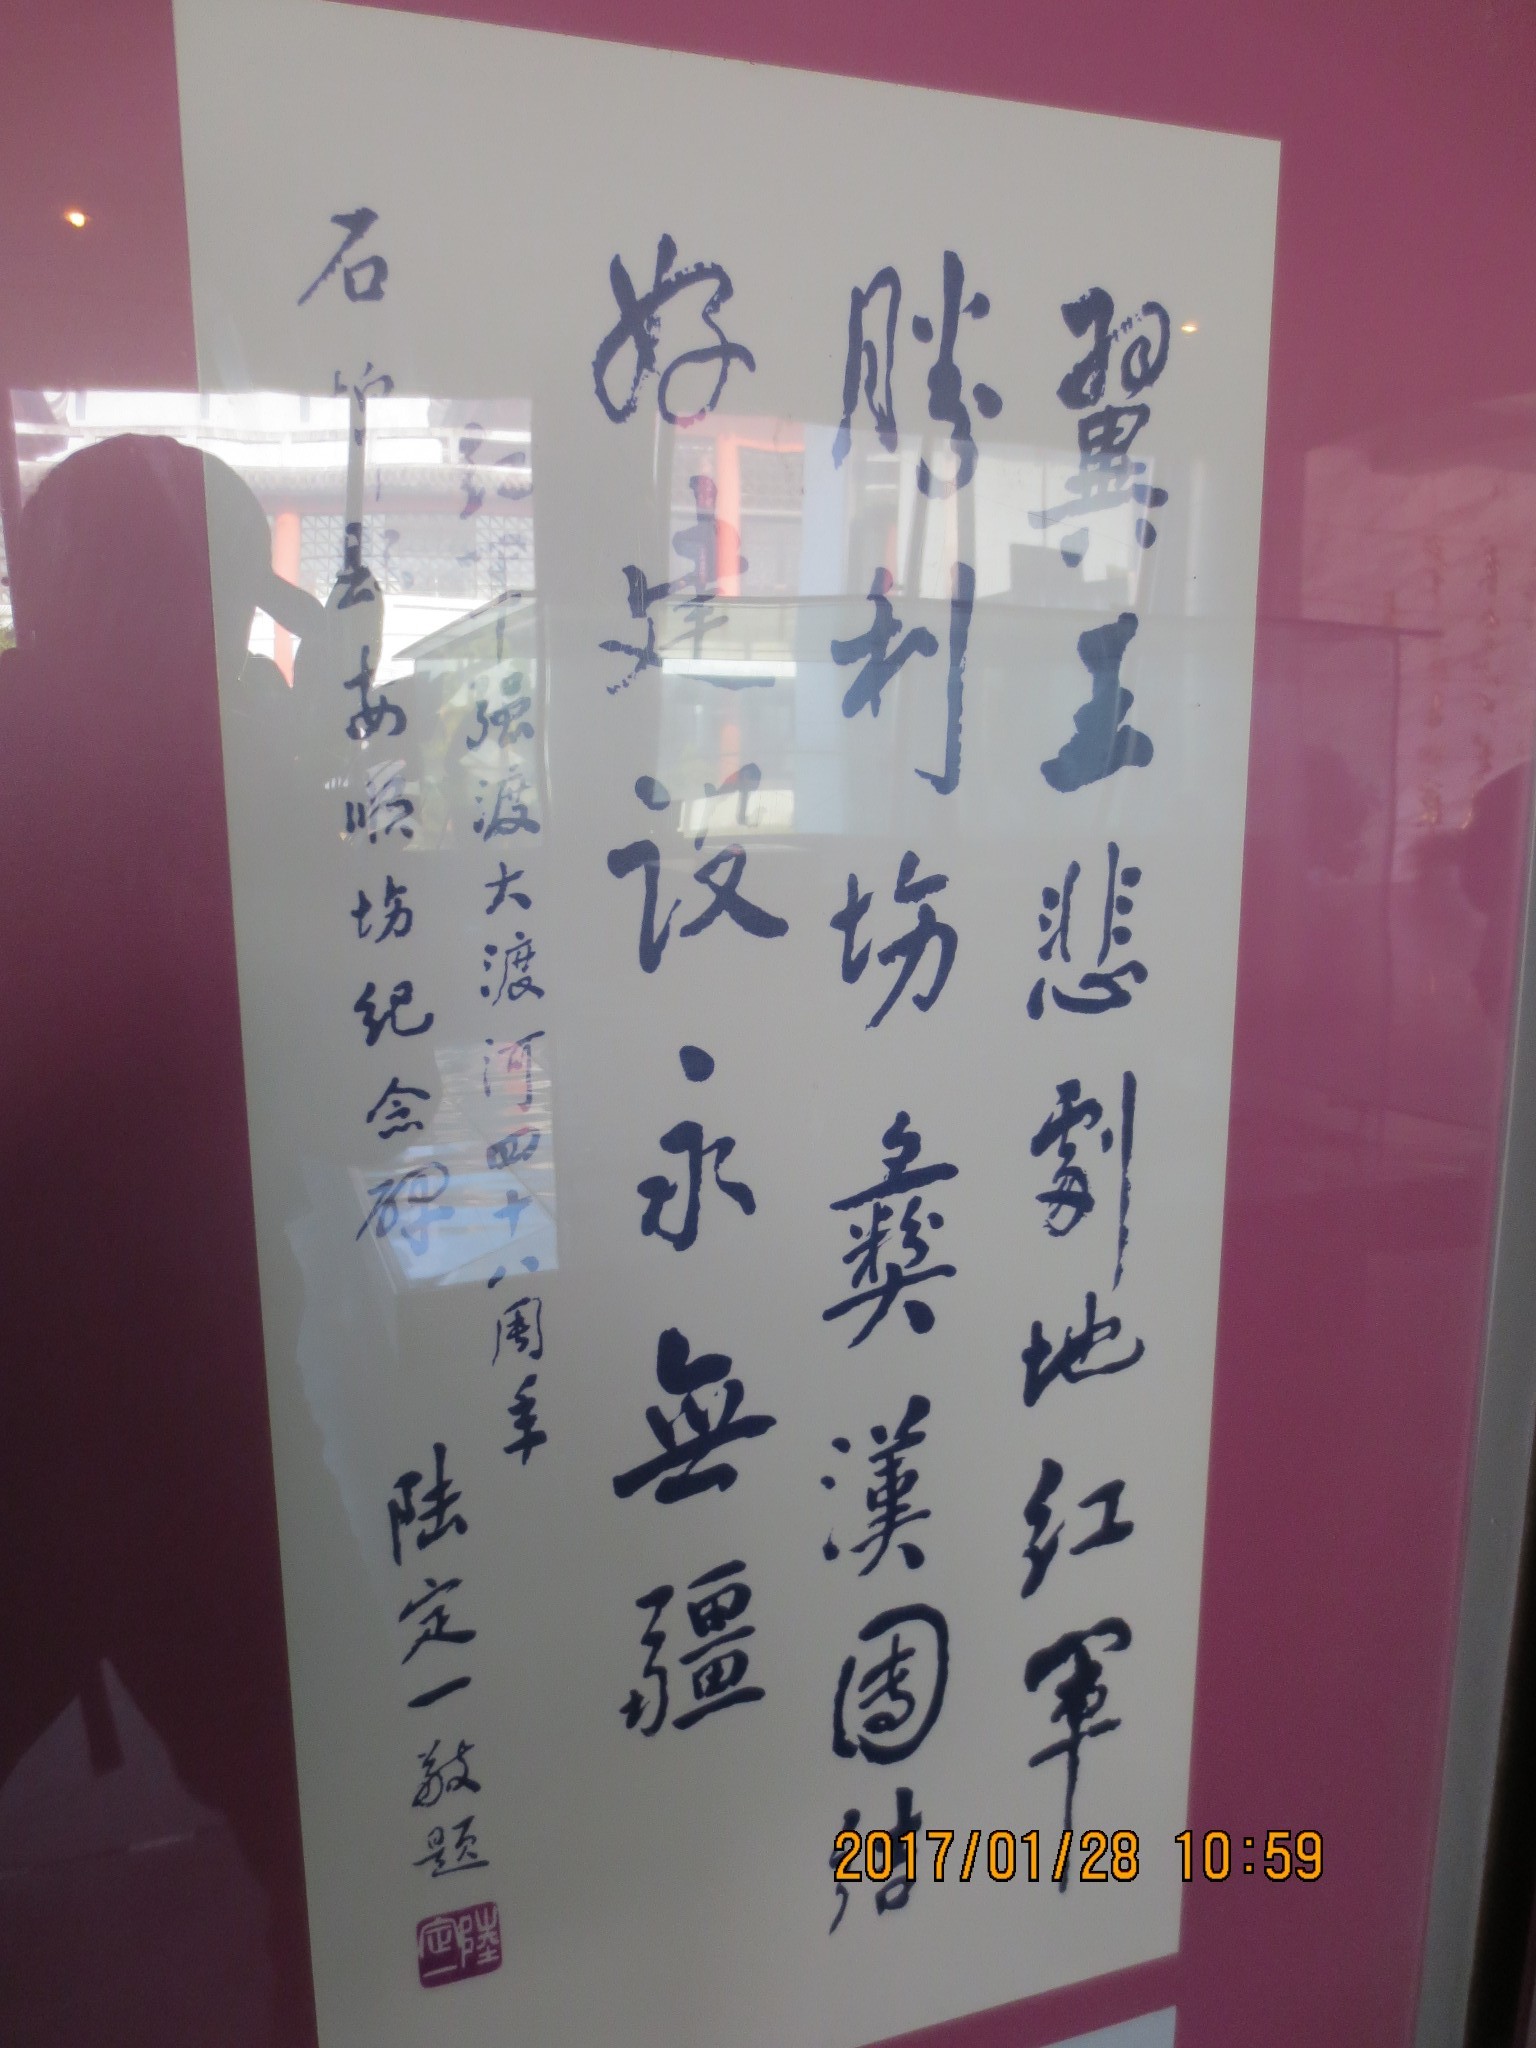 翼王悲劇地红軍
勝利场彝漢團结
好建设永無疆
红 强渡大渡河四十八周年
石棉县安顺场纪念碑
陆定一敬题
陸定一
2017/01/28 10:59